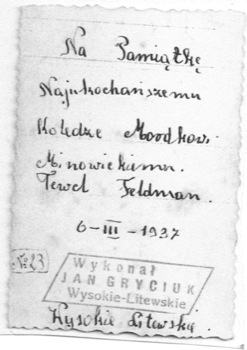 Na Pamiątkę
Najukochańszemu
Koledze Moodkowi
Minowickiemu.
Tewel Feldman.
6-III-1937
№23
Wykonał
JAN GRYCIUK
Wysokie-Litewskie
Wysokie Litewskie.